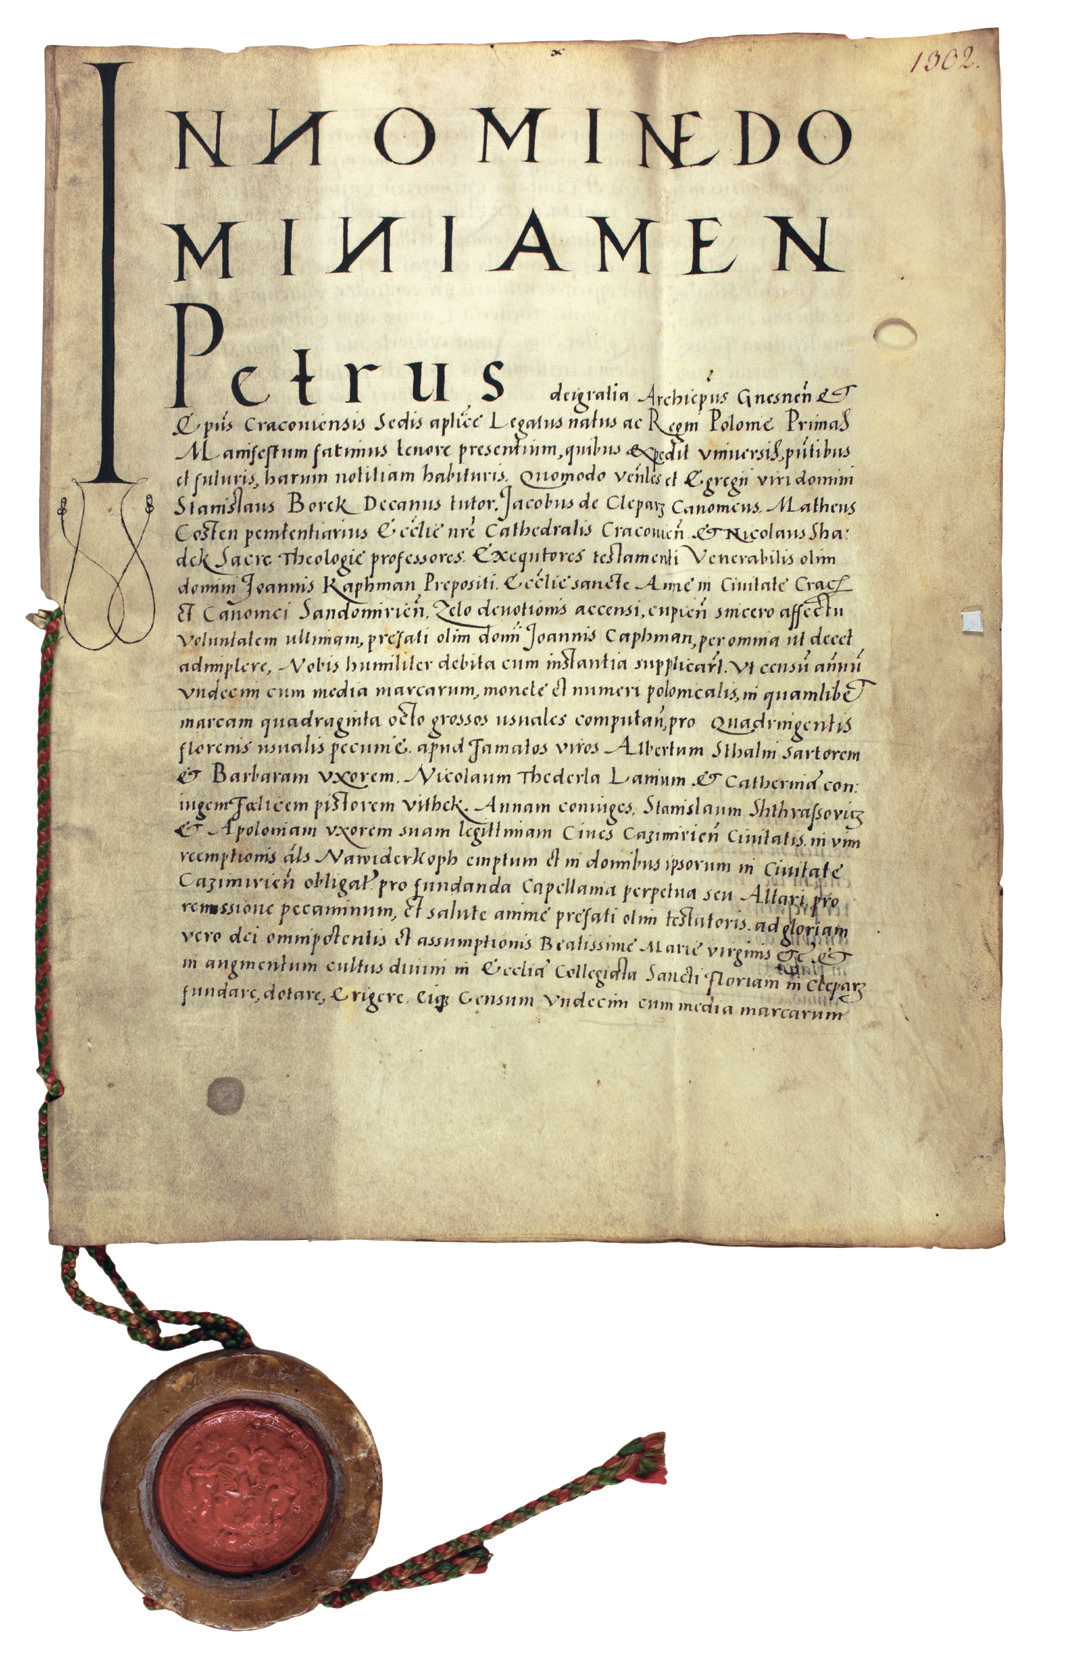 1302.
IN NOMINE DO
MINI AMEN
Petrus dei gratia Archiep̃us Gnesneñ &
Ep̃us Cracouiensis Sedis aplice Legatus natus ac Regni Polonie Primas
Manifestum facimus tenore presentium, quibus expedit vniuersis, pñtibus
et futuris, harum notitiam habituris. Quomodo veñles et Egregii viri domini
Stanislaus Borek Decanus tutor. Jacobus de Cleparz Canonicus. Matheus
Costen penitentiarius Ecclie nre Cathedralis Cracouieñ & Nicolaus Sha:
dek Sacre Theologie professores. Exequtores testamenti Venerabilis olim
domini Joannis Kaphman Prepositi. Ecclie sancte Anne in Ciuitate Crac̃
et Canonici Sandomirieñ. Zelo deuotionis accensi, cupieñ sincero affectu
voluntatem ultimam, prefati olim domi Joannis Caphman, per omnia ut decet
adimplere, Nobis humiliter debita cum instantia supplicar̃t. Vt censũ annũ
vndecim cum media marcarum, monete et numeri polonicalis, in quamlibet
marcam quadraginta octo grossos usuales computañ, pro Quadringentis
florenis usualis pecunie. apud famatos viros Albertum Sthalm sartorem
& Barbaram vxorem. Nicolaum Thederla Lanium & Catherinã con:
iugem Fœlicem pistorem vithek. Annam coniuges. Stanislaum Shthrassovicz
& Apoloniam vxorem suam legittimam Ciues Cazimirieñ Ciuitatis. in vim
reemptionis als̃ Nawiderkoph emptum et in domibus ipsorum in Ciuitate
Cazimirieñ obligat̃ pro fundanda Capellania perpetua seu Altari pro
remissione peccaminum, et salute anime prefati olim testatoris. ad gloriam
vero dei omnipotentis et assumptionis Beatissime Marie virginis &c̃. &
in augmentum cultus diuini in Ecclia Collegiata Sancti floriani in Cleparz
fundare, dotare, Erigere. eiq; Censum vndecim cum media marcarum